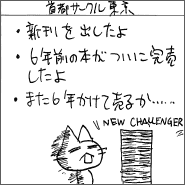 首都サークル 東京
・新刊を出したよ
・6年前の本がついに完売
したよ
・また6年かけて売るか……
NEW CHALLENGER